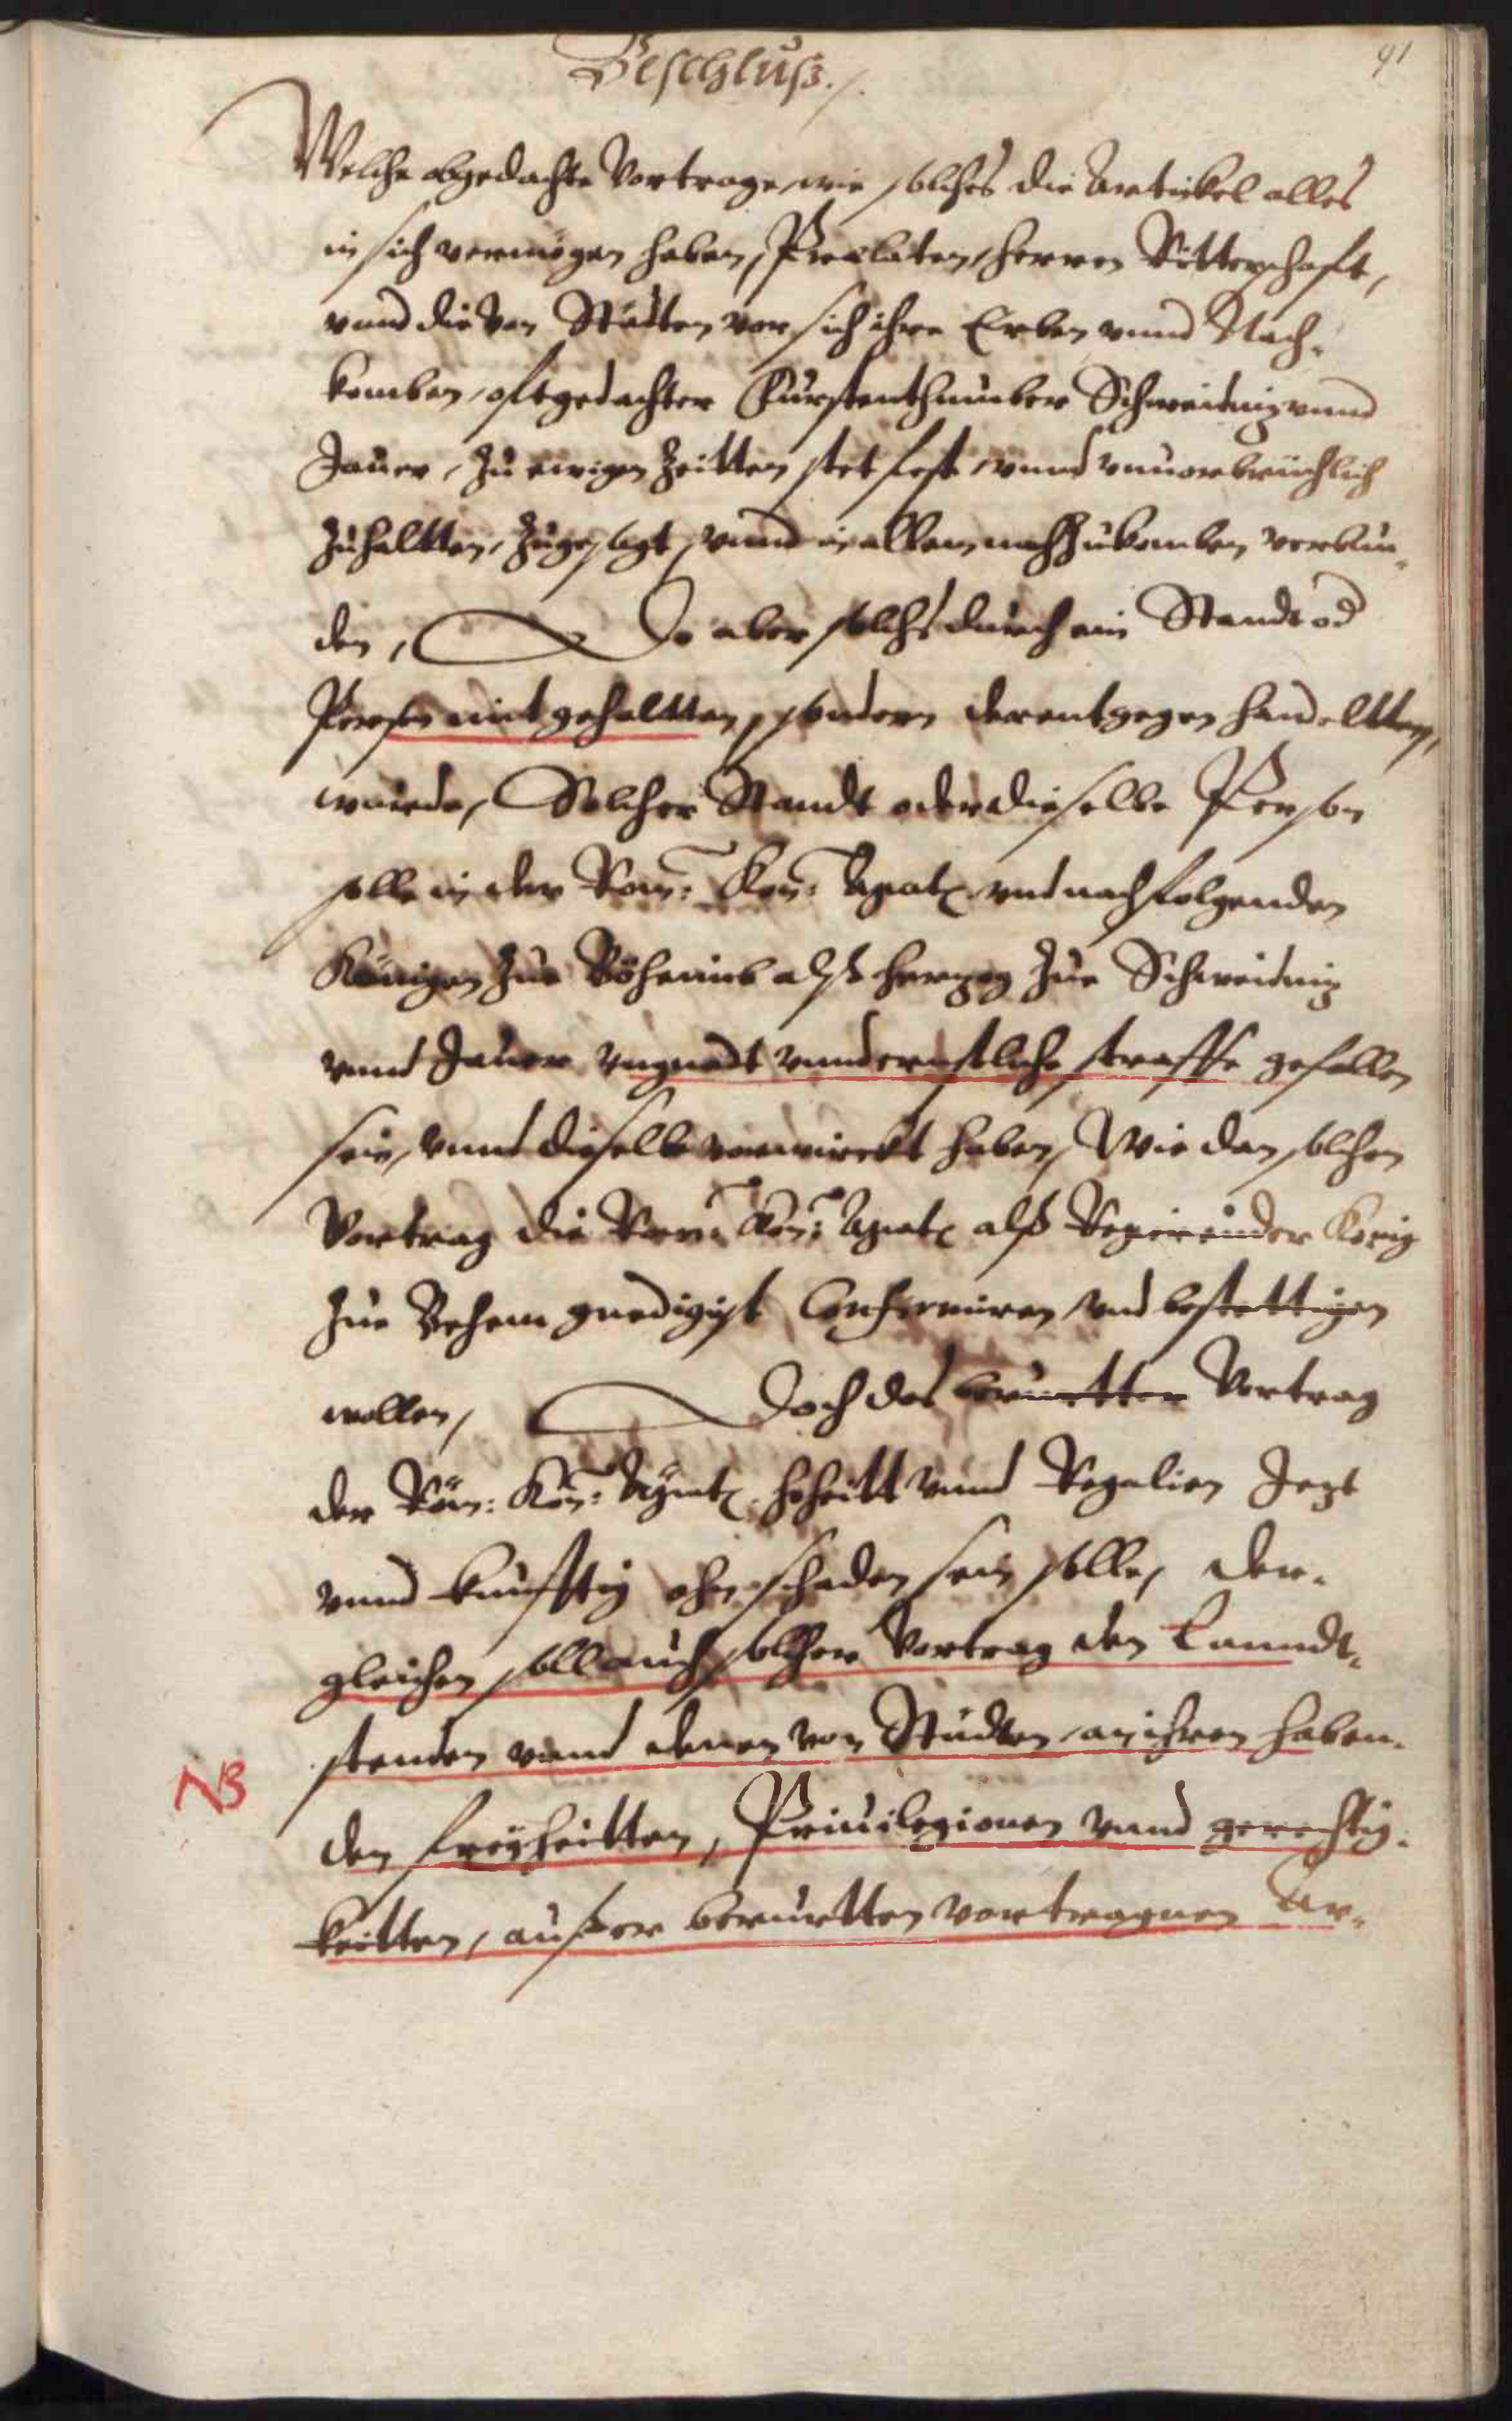 91
Beschluß./.
Welche obgedachte Vortrage, wie solches die Artickel alles
in sich vermögen haben, Praelaten, Herren Ritterschaft,
vnnd die von Städten vor sich ihre Erben vnnd Nach-
komben, oftgedachter Fürstenthumber Schweidnitz vnnd
Jauer, zu ewigen Zeitten stet fest vnnd vnuorbrüchlich
zuhaltten, zugesagt, vnnd in allem nachzukomben verbun-
den, Do aber solchs durch ein Standt od
Person nit gehaltten, sondern derentgegen handeltten,
wurde, Solcher Standt oder dieselbe Person
solle in der Röm: Kön: Maÿt vnd nachfolgenden
Königen zue Böhaimb alß Herzog zue Schweidnitz
vnnd Jauer vngnadt vnnd ernstliche straffe gefallen
sein, vnnd dieselbe verwirckt haben, Wie dan solchen
Vortrag die Röm: Kön: Maÿt alß Regierinder König
zue Behem gnedigist Confirmiren vnd bestettigen
wollen, Doch das berurtter Vortrag
der Röm: Kön: Maÿt Hoheitt vnnd Regalien Jezt
vnnd kunfftig ohne schaden sein solle, Der-
gleichen soll auch solcher Vortrag den Lanndt-
stenden vnnd denen von Städten an ihren haben-
NB
den freÿheitten, Priuilegionen vnnd gerechtig-
keitten, außer berurtten vortragnen Ar-